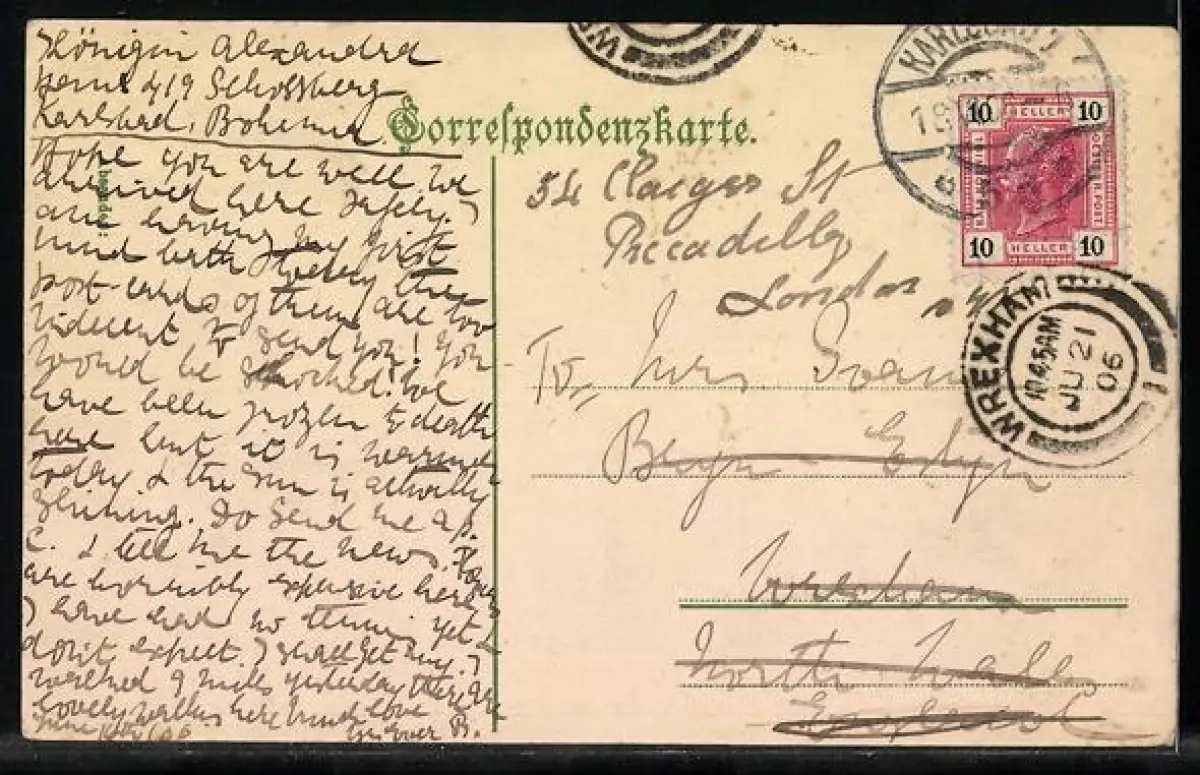 Königin Alexandra
419 Schossberg
Karlsbad, Bohemia
Hope you are well. We
arrived here safely. I
am having my first
mud bath
post-cards of them are too
indecent to send you! You
would be shocked! We
have been frozen to death
here but it is warmer
today & the sun is actually
shining. Do send me a p.
c. & tell me the news.
are horribly expensive here
I have had no tennis yet &
don't expect I shall get any. I
walked 9 miles yesterday there are
lovely walks here Much love
June 06 B.
Correspondenzkarte.
54 Clarges St
Piccadilly
London
To, Mrs. Evan
Bryn Estyn
Wrexham
North Wales
England
KARLSBAD
10 HELLER 10
10 HELLER 10
WREXHAM
10 45AM
JU 21
06